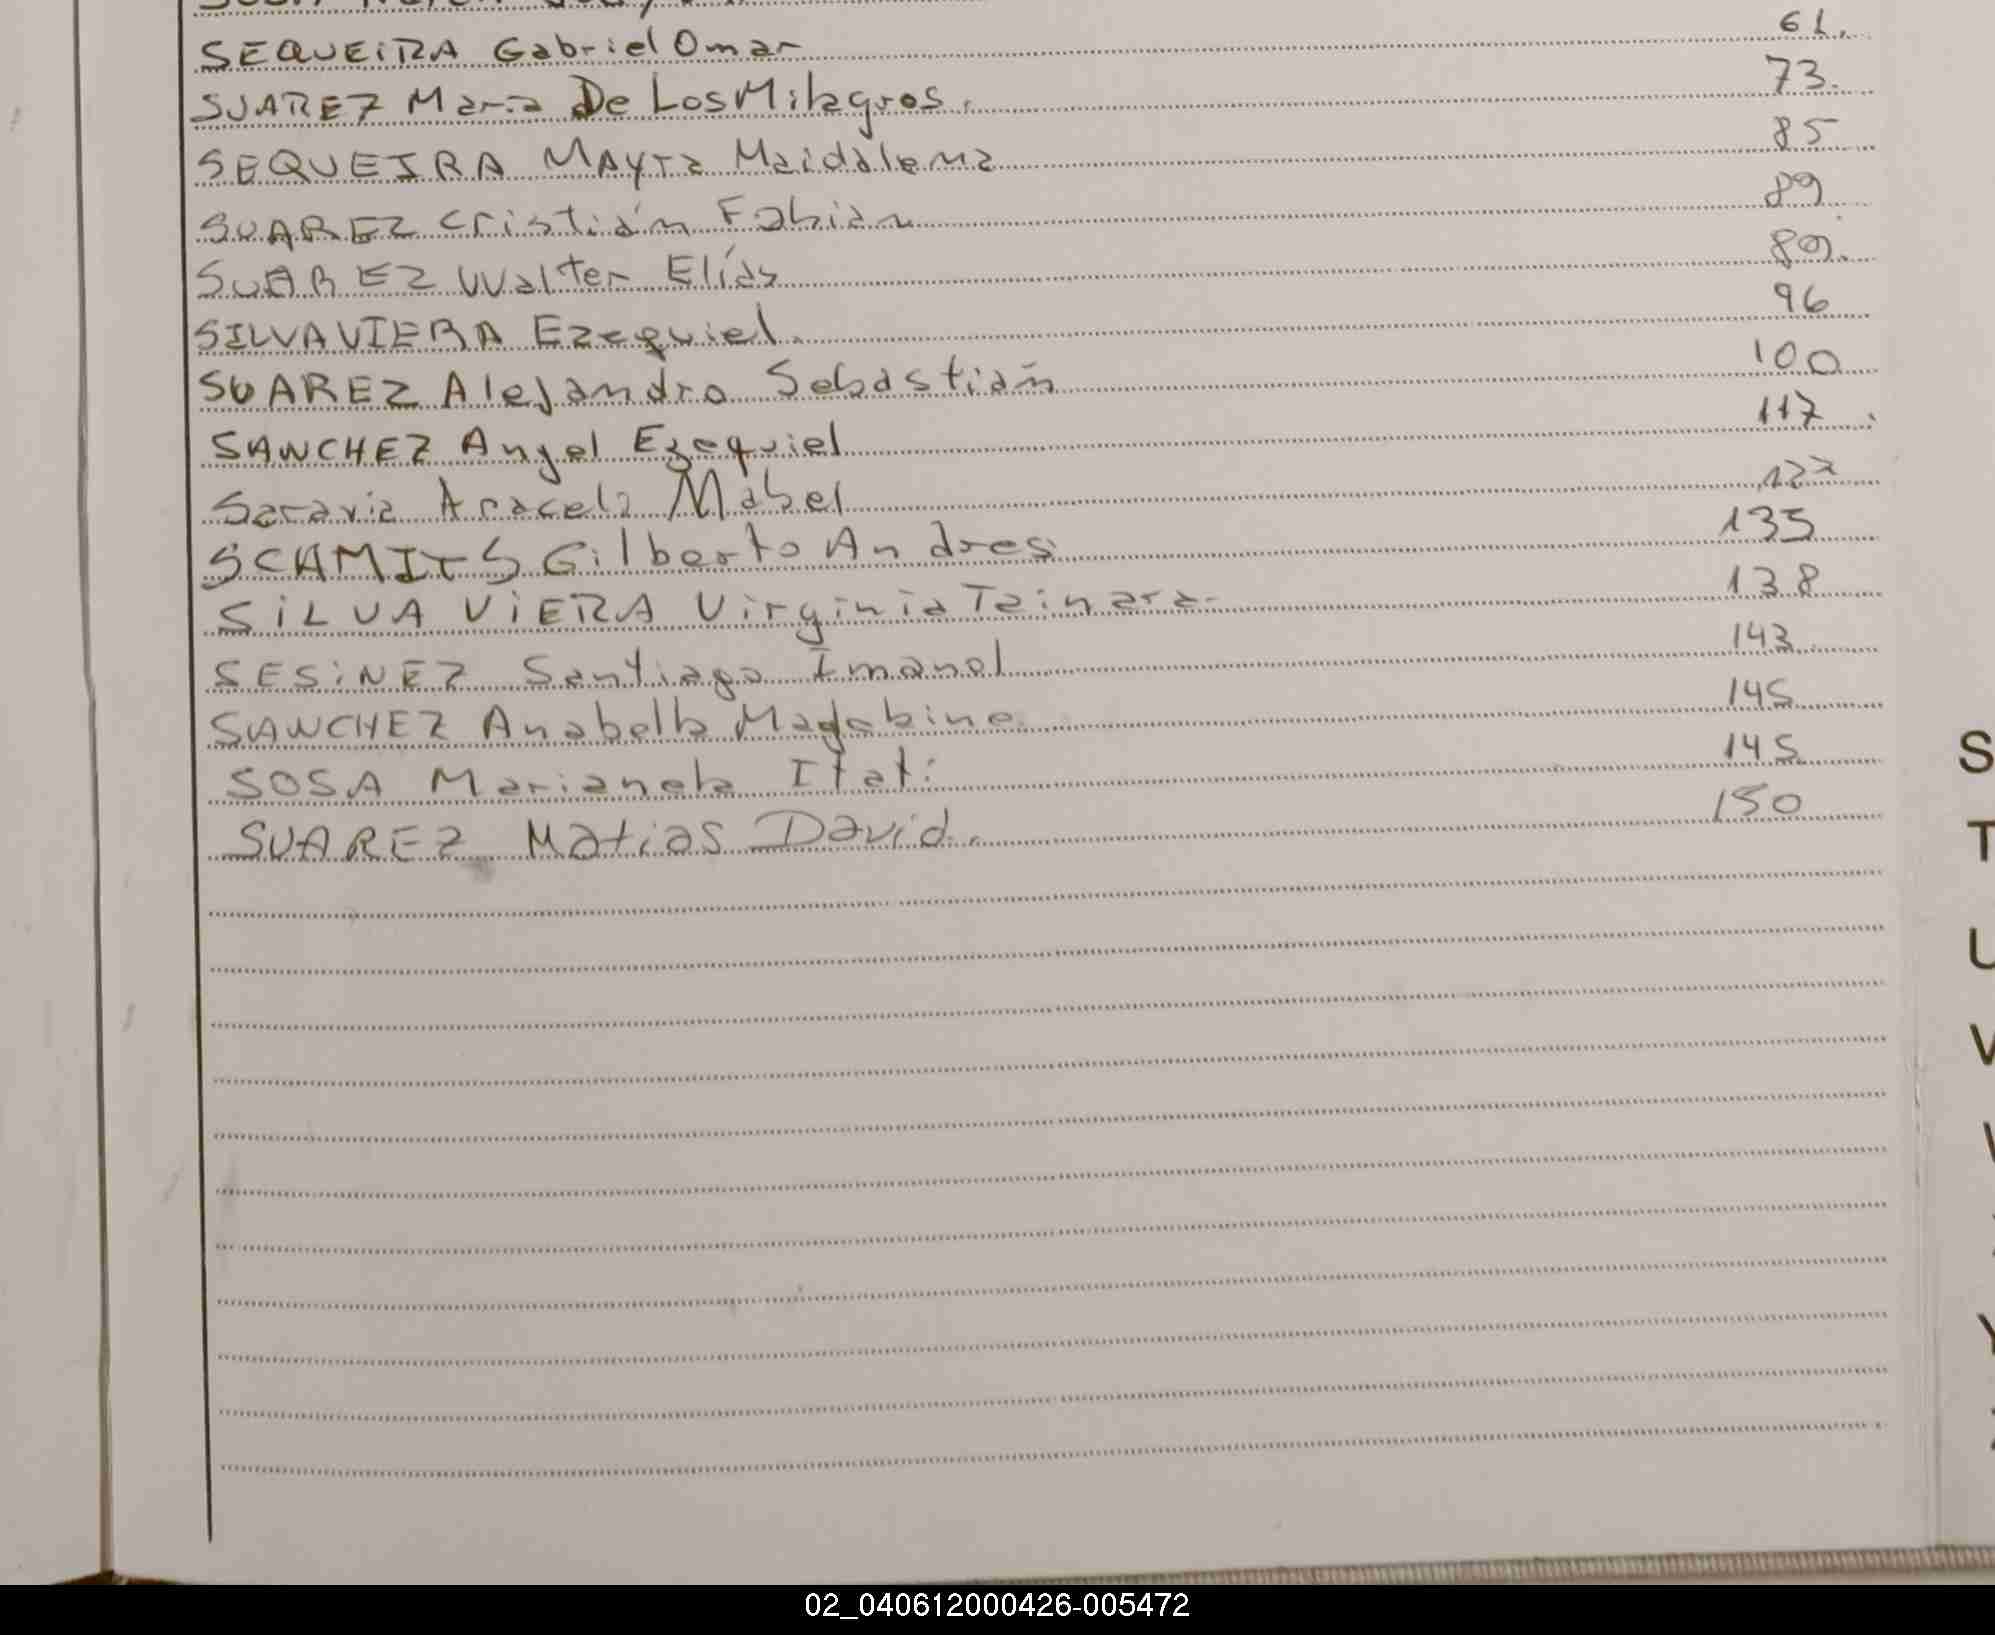 SEQUEIRA Gabriel Omar 61.
SUAREZ Maria De Los Milagros. 73.
SEQUEIRA MAYra Maidalena 85
SUAREZ Cristián Fabian 89
SUAREZ Walter Elías 89.
SILVAVIERA Ezequiel. 96
SUAREZ Alejandro Sebastian 100
SANCHEZ Angel Ezequiel 117
Saravia Araceli Mabel 127
SCHMITS Gilberto Andres 135
SiLVA ViERA Virginia Tainara 138
SESiNEZ Santiago Imanol 143
SANCHEZ Anabella 145
SOSA Marianela Itati 145
SUAREZ Matias David. 150
S
T
U
V
Y
02_040612000426-005472